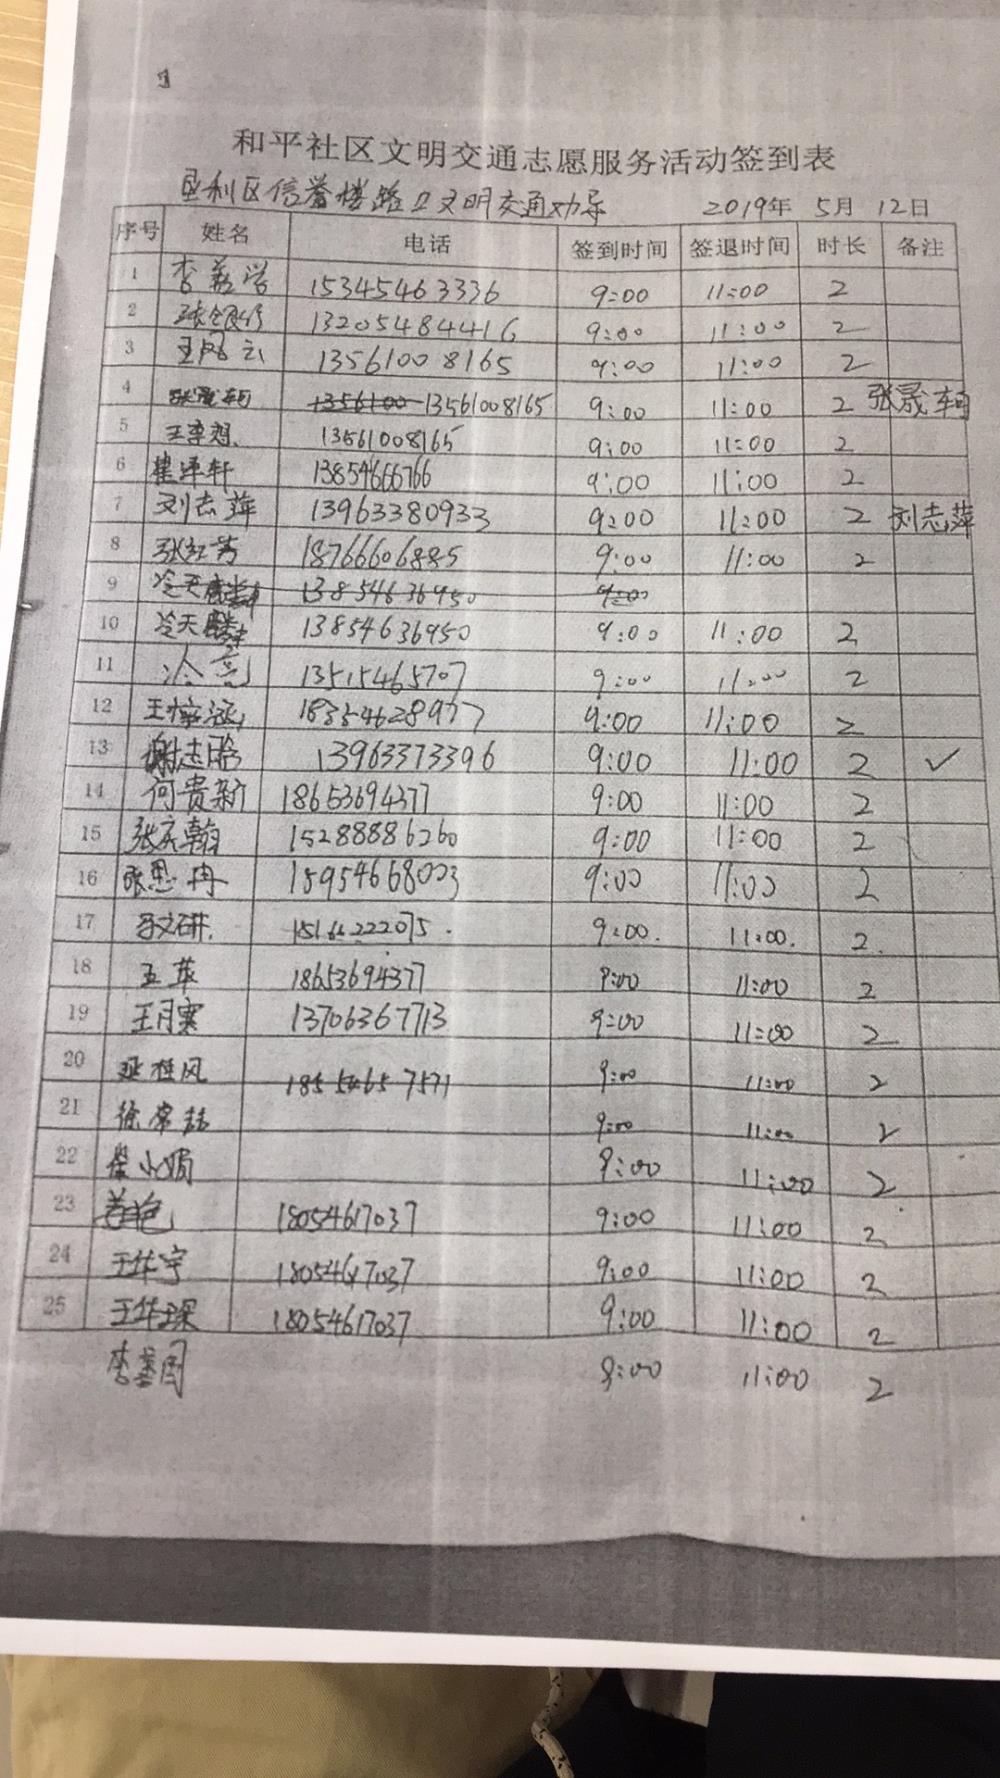 1
和平社区文明交通志愿服务活动签到表
垦利区信誉楼路口文明交通劝导 2019年 5月 12日
序号 姓名 电话 签到时间 签退时间 时长 备注
1 李 学 15345463336 9:00 11:00 2
2 张银行 13205484416 9:00 11:00 2
3 王风云 13561008165 9:00 11:00 2
4 张晟轲 1356100 13561008165 9:00 11:00 2 张晟轲
5 王李想. 13561008165 9:00 11:00 2
6 崔泽轩 13854666766 9:00 11:00 2
7 刘志萍 13963380933 9:00 11:00 2 刘志萍
8 张红芳 18766606885 9:00 11:00 2
9 冷天 13854636950 9:00
10 冷天麟 13854636950 9:00 11:00 2
11 冷亮 13515465707 9:00 11:00 2
12 王 涵 18354628977 9:00 11:00 2
13 谢志晗 13963373396 9:00 11:00 2 ✓
14 何贵新 18653694377 9:00 11:00 2
15 张庆翰 15288886260 9:00 11:00 2
16 张思冉 15954668003 9:00 11:00 2
17 文研. 15166222075. 9:00. 11:00. 2.
18 王苹 18653694377 9:00 11:00 2
19 王月寒 13706367713 9:00 11:00 2
20 延桂风 18554657571 9:00 11:00 2
21 徐常 9:00 11:00 2
22 柴小娟 9:00 11:00 2
23 18054617037 9:00 11:00 2
24 王华宇 18054617037 9:00 11:00 2
25 王华琛 18054617037 9:00 11:00 2
李基国 9:00 11:00 2